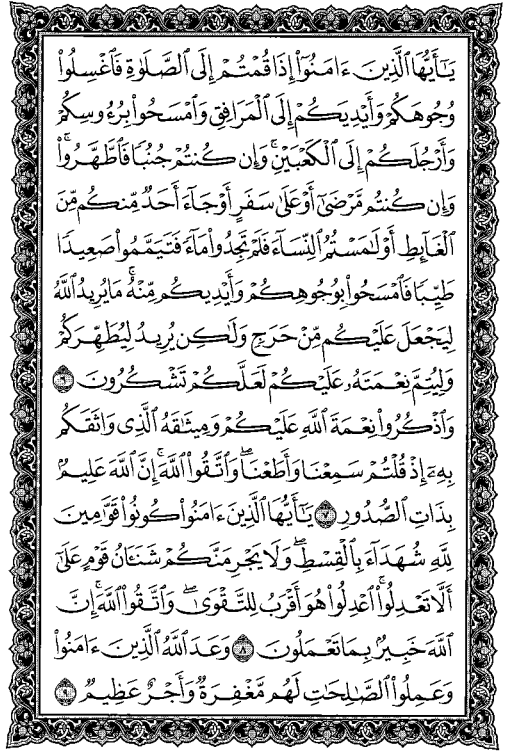 يَـٰٓأَيُّهَا ٱلَّذِينَ ءَامَنُوٓا۟ إِذَا قُمْتُمْ إِلَى ٱلصَّلَوٰةِ فَٱغْسِلُوا۟
وُجُوهَكُمْ وَأَيْدِيَكُمْ إِلَى ٱلْمَرَافِقِ وَٱمْسَحُوا۟ بِرُءُوسِكُمْ
وَأَرْجُلَكُمْ إِلَى ٱلْكَعْبَيْنِ ۚ وَإِن كُنتُمْ جُنُبًا فَٱطَّهَّرُوا۟ ۚ
وَإِن كُنتُم مَّرْضَىٰٓ أَوْ عَلَىٰ سَفَرٍ أَوْ جَآءَ أَحَدٌ مِّنكُم مِّنَ
ٱلْغَآئِطِ أَوْ لَـٰمَسْتُمُ ٱلنِّسَآءَ فَلَمْ تَجِدُوا۟ مَآءً فَتَيَمَّمُوا۟ صَعِيدًا
طَيِّبًا فَٱمْسَحُوا۟ بِوُجُوهِكُمْ وَأَيْدِيكُم مِّنْهُ ۚ مَا يُرِيدُ ٱللَّهُ
لِيَجْعَلَ عَلَيْكُم مِّنْ حَرَجٍ وَلَـٰكِن يُرِيدُ لِيُطَهِّرَكُمْ
وَلِيُتِمَّ نِعْمَتَهُۥ عَلَيْكُمْ لَعَلَّكُمْ تَشْكُرُونَ ۝٦
وَٱذْكُرُوا۟ نِعْمَةَ ٱللَّهِ عَلَيْكُمْ وَمِيثَـٰقَهُ ٱلَّذِى وَاثَقَكُم
بِهِۦٓ إِذْ قُلْتُمْ سَمِعْنَا وَأَطَعْنَا ۖ وَٱتَّقُوا۟ ٱللَّهَ ۚ إِنَّ ٱللَّهَ عَلِيمٌۢ
بِذَاتِ ٱلصُّدُورِ ۝٧ يَـٰٓأَيُّهَا ٱلَّذِينَ ءَامَنُوا۟ كُونُوا۟ قَوَّٰمِينَ
لِلَّهِ شُهَدَآءَ بِٱلْقِسْطِ ۖ وَلَا يَجْرِمَنَّكُمْ شَنَـَٔانُ قَوْمٍ عَلَىٰٓ
أَلَّا تَعْدِلُوا۟ ۚ ٱعْدِلُوا۟ هُوَ أَقْرَبُ لِلتَّقْوَىٰ ۖ وَٱتَّقُوا۟ ٱللَّهَ ۚ إِنَّ
ٱللَّهَ خَبِيرٌۢ بِمَا تَعْمَلُونَ ۝٨ وَعَدَ ٱللَّهُ ٱلَّذِينَ ءَامَنُوا۟
وَعَمِلُوا۟ ٱلصَّـٰلِحَـٰتِ ۙ لَهُم مَّغْفِرَةٌ وَأَجْرٌ عَظِيمٌ ۝٩